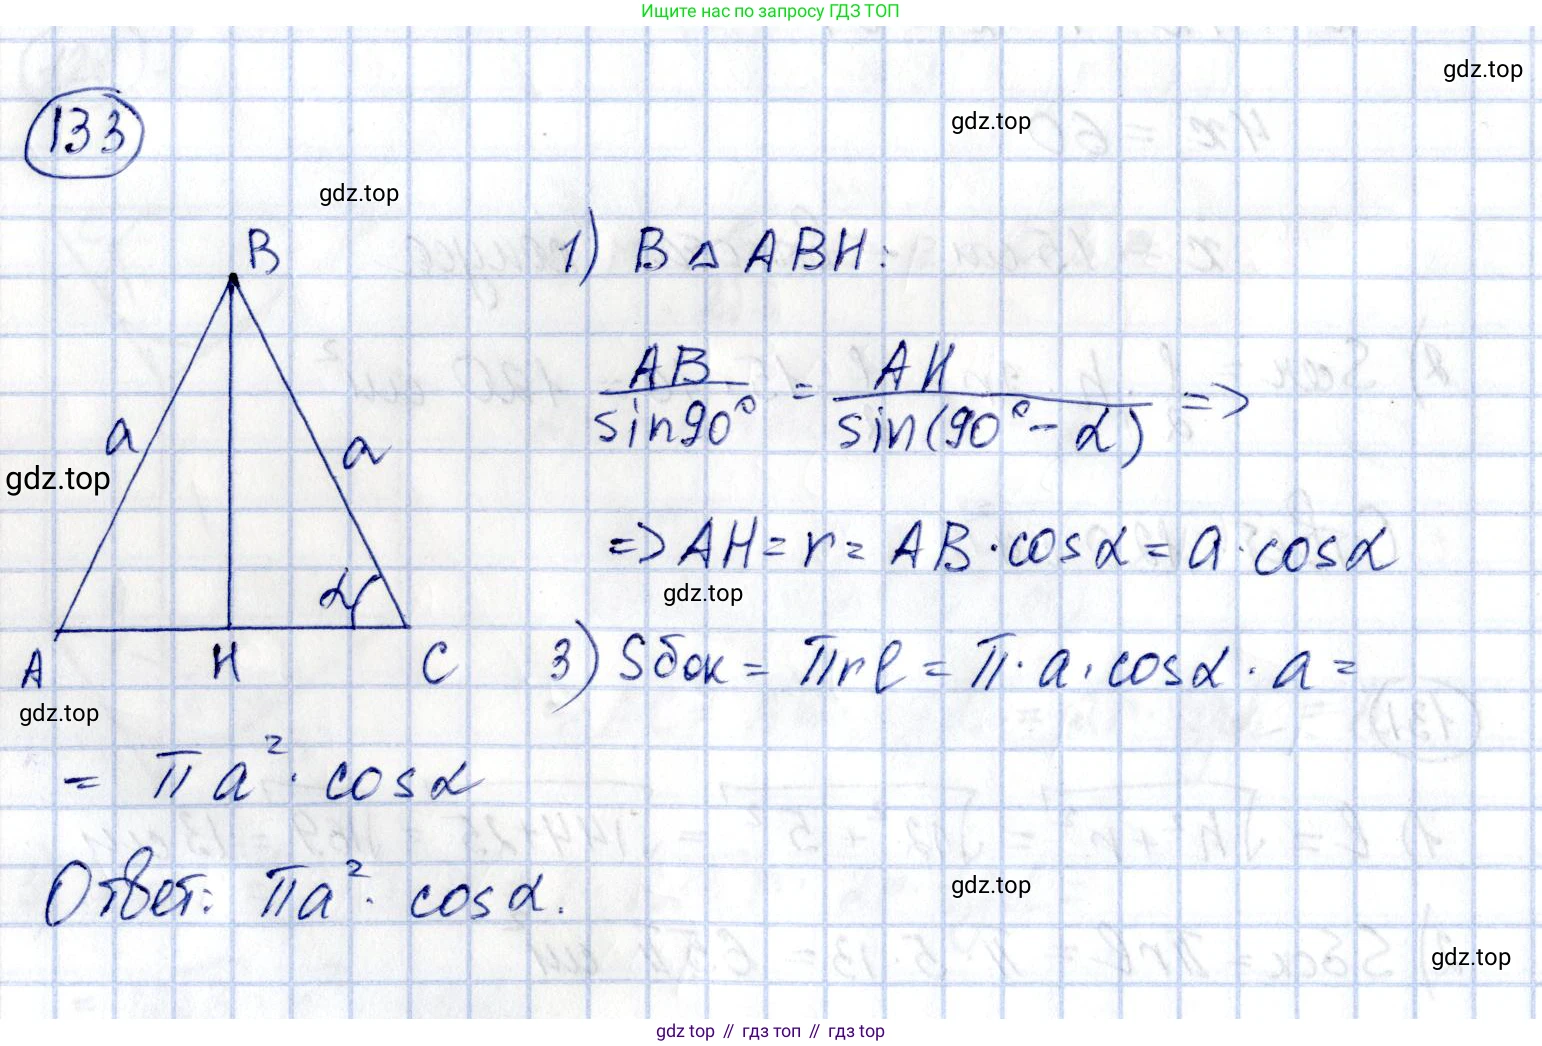 Ищите нас по запросу ГДЗ ТОП
gdz.top
133
gdz.top
gdz.top
B
1) В △ ABH:
AB/sin90° = AH/sin(90° - α) =>
a
a
gdz.top
=> AH = r = AB · cosα = a · cosα
gdz.top
α
A H C
3) Sбок = πrl = π · a · cosα · a =
gdz.top
= πa² · cosα
Ответ: πa² · cosα.
gdz.top
gdz.top
gdz top // гдз топ // гдз top